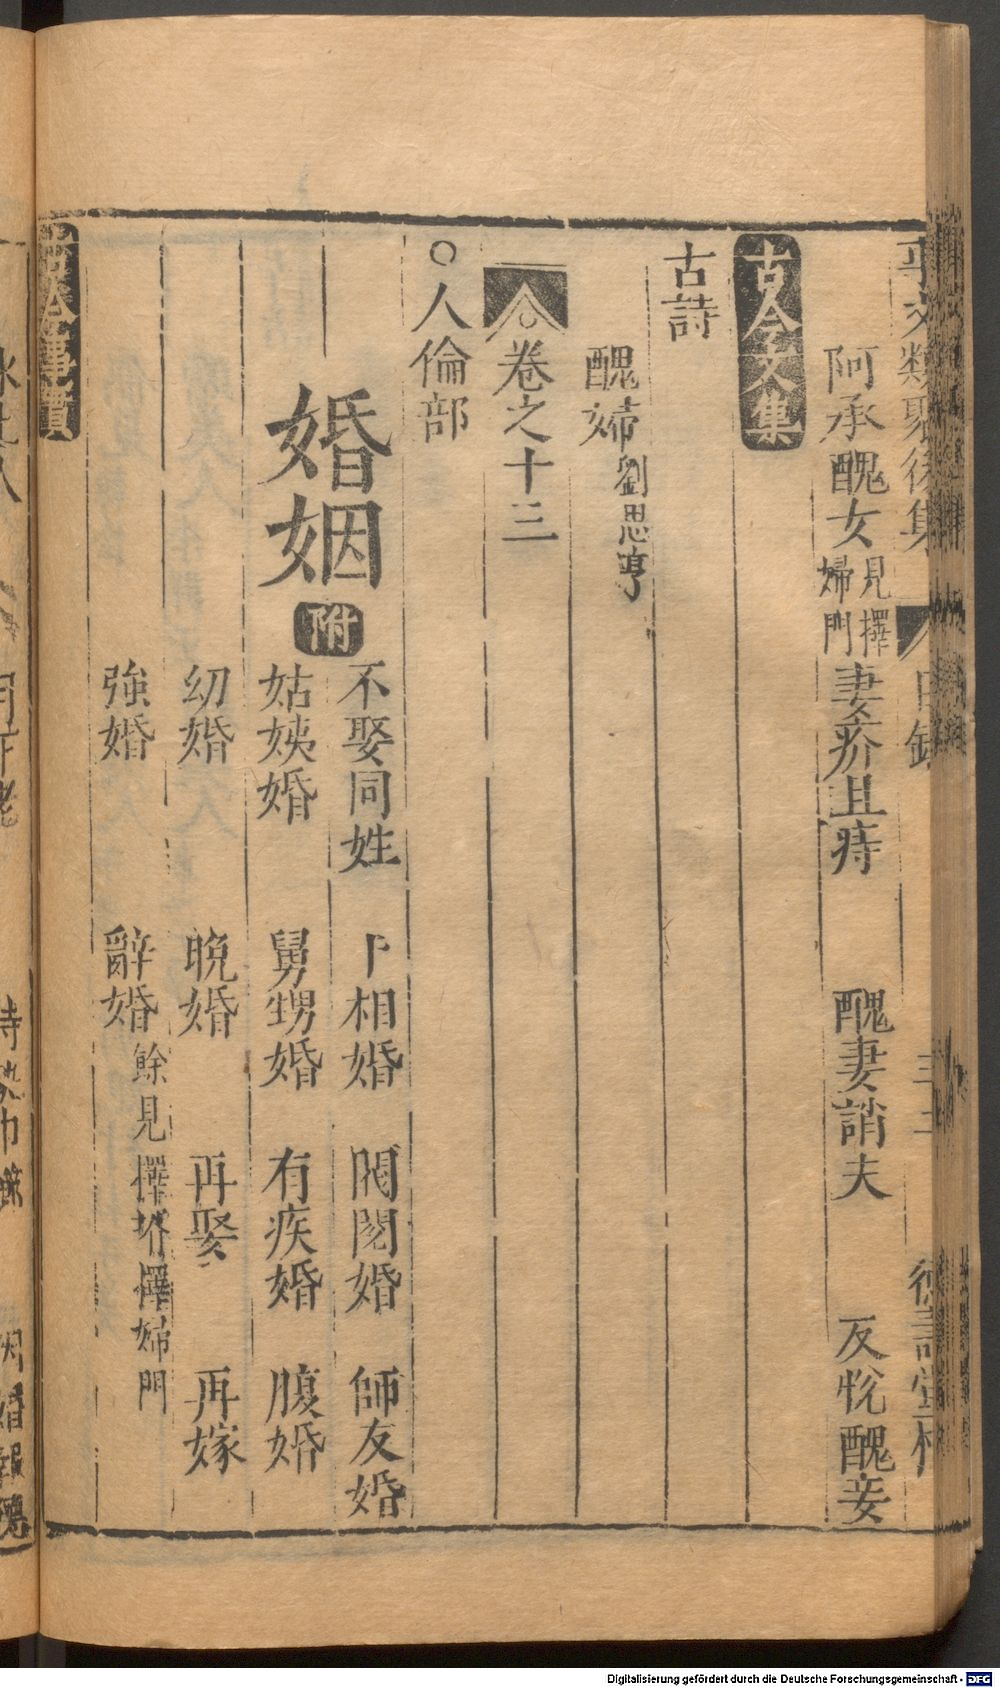 事文類聚後集 目錄 三十二 德壽堂梓
阿承醜女見擇婦門 妻疥且痔 醜妻誚夫 反悅醜妾
古今文集
古詩
醜婦劉思真
卷之十三
○人倫部
婚姻附 不娶同姓 卜相婚 閥閱婚 師友婚
姑姨婚 舅甥婚 有疾婚 腹婚
幼婚 晚婚 再娶 再嫁
強婚 辭婚餘見擇壻擇婦門
古今事實
Digitalisierung gefördert durch die Deutsche Forschungsgemeinschaft - DFG